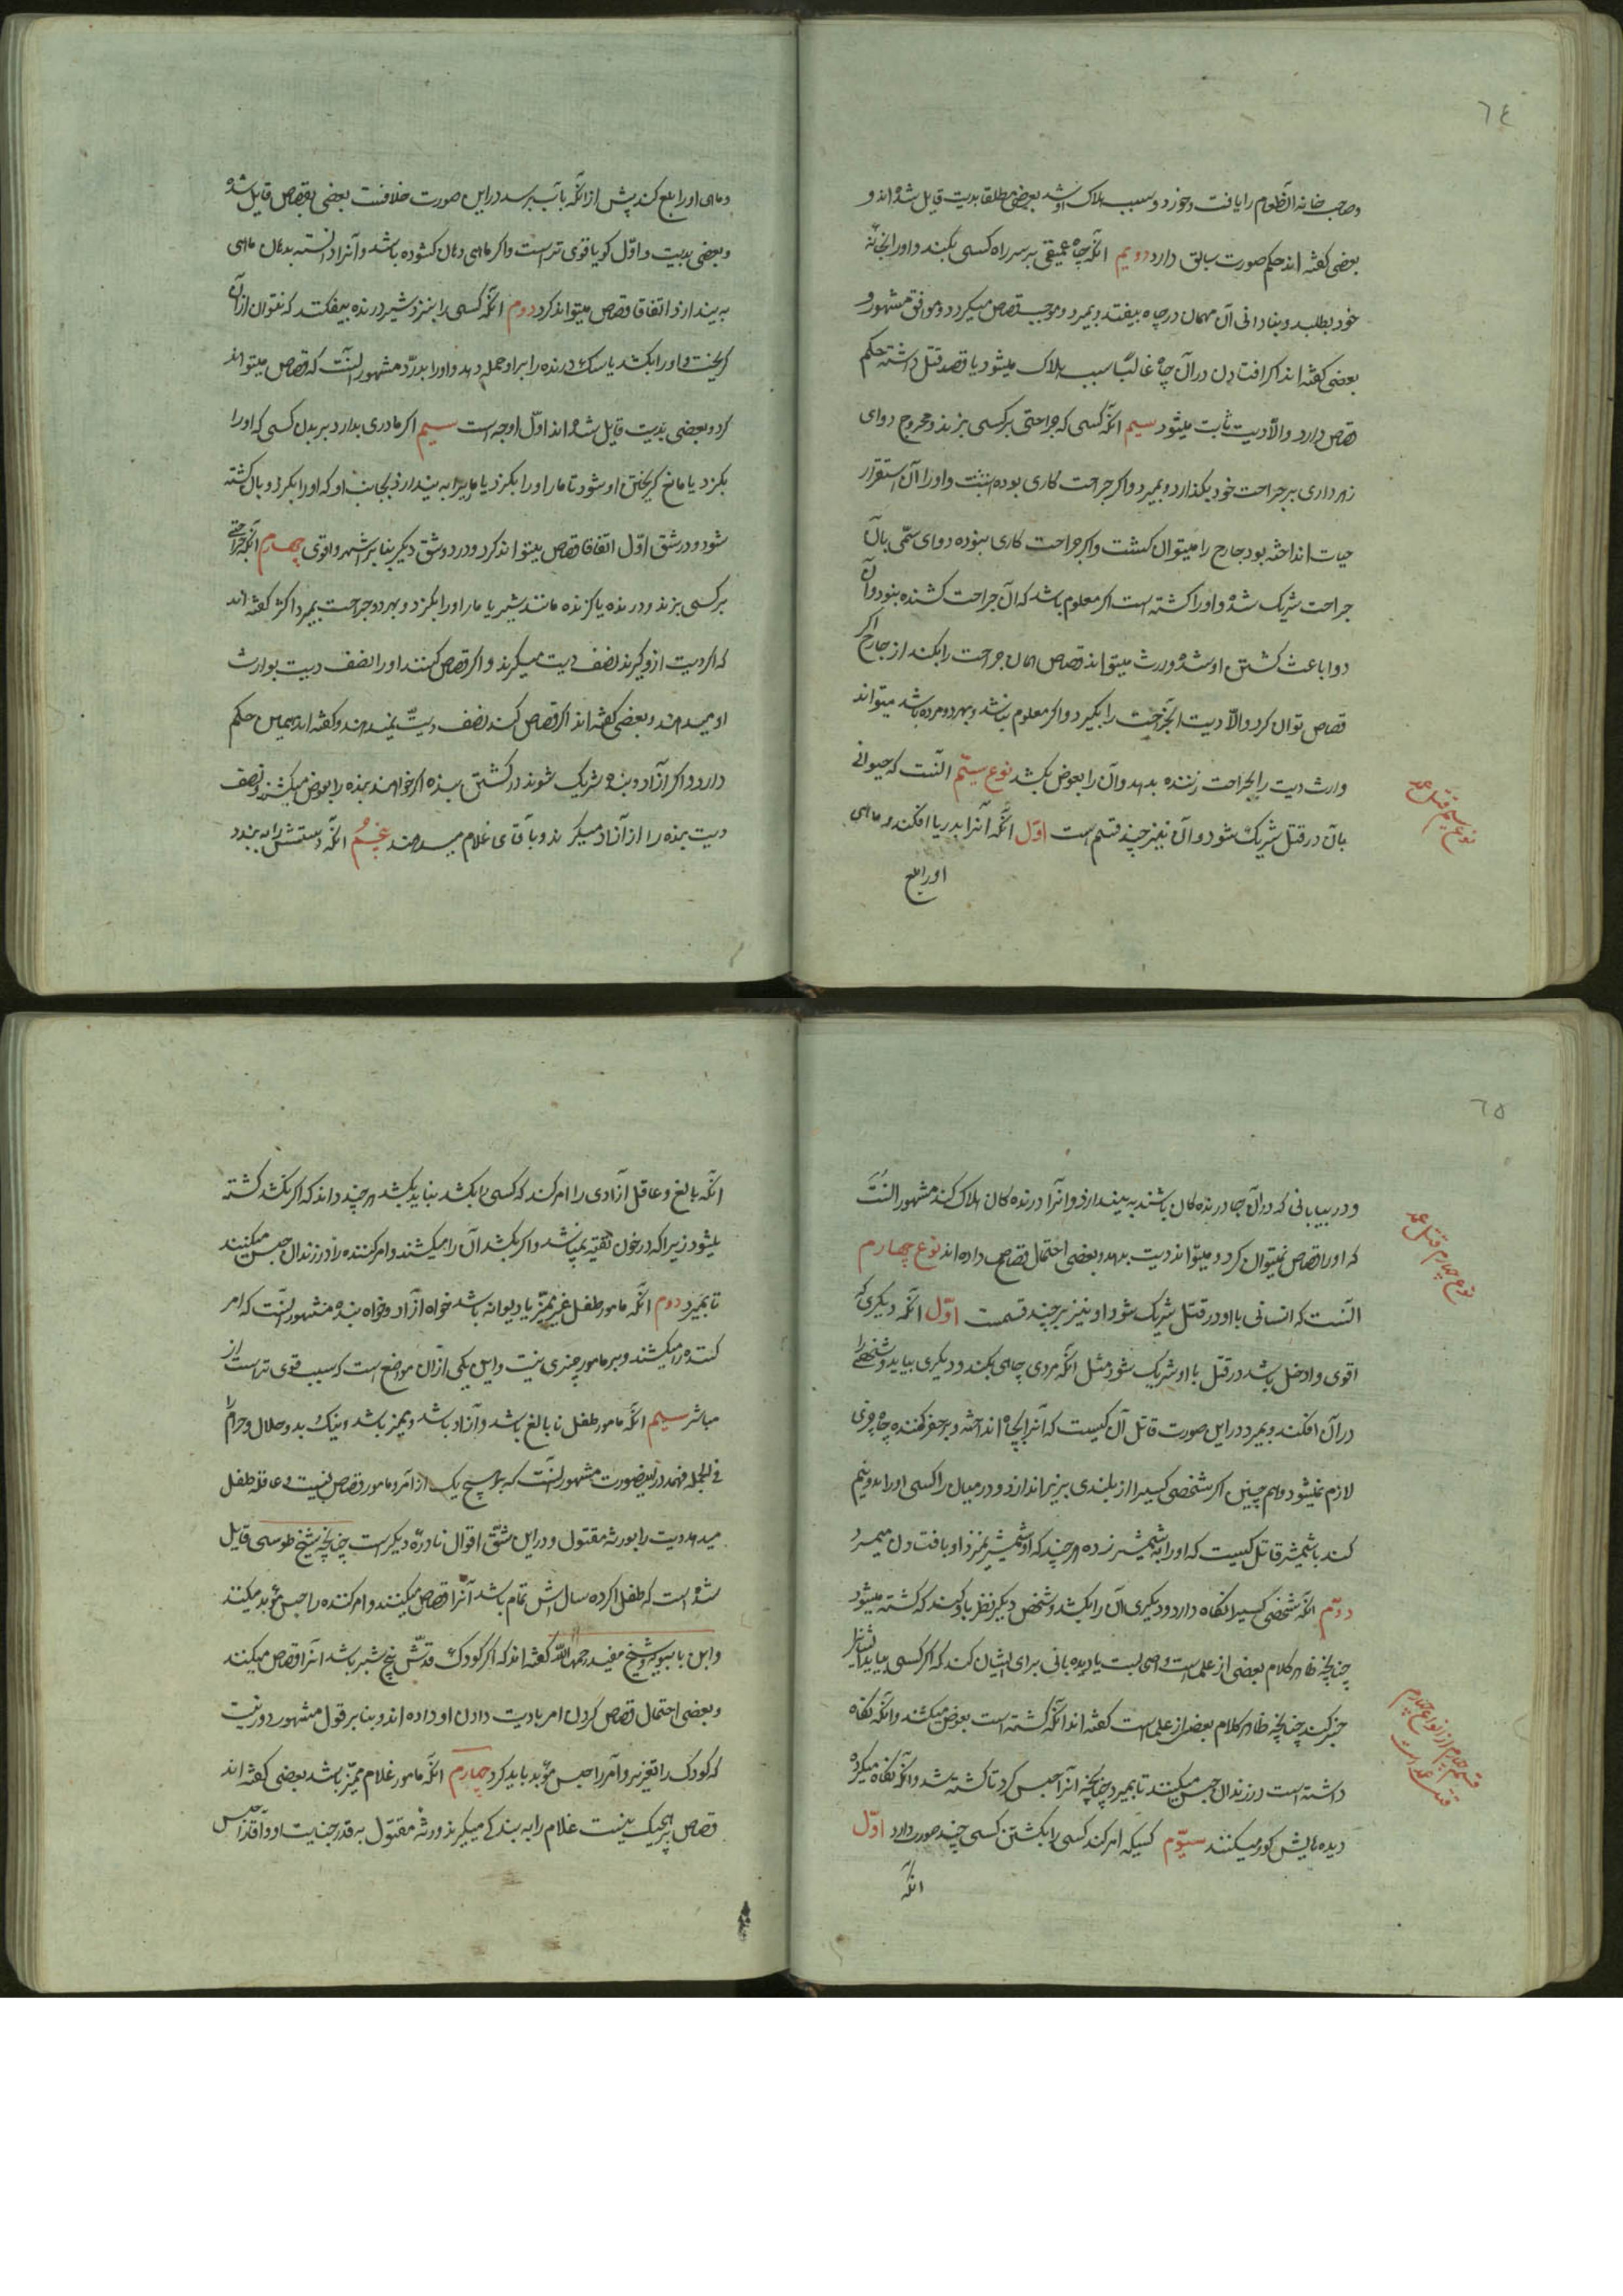 ٦٤
و صاحب خانه آن طعام را یافت و خورد و سبب هلاک او شد بعضی مطلقا بدیت قایل شده اند و
بعضی گفته اند حکم صورت سابق دارد دویم آنکه چاه عمیقی بر سر راه کسی بکند و او را بخانهٔ
خود بطلبد و بنادانی آن مهمان در چاه بیفتد و بمیرد و موجب قصاص میگردد و موافق مشهور و
بعضی گفته اند اگر افتادن در آن چاه غالباً سبب هلاک میشود یا قصد قتل داشته حکم
قصاص دارد والّا دیت ثابت میشود سیم آنکه کسی که جراحتی بر کسی بزند و مجروح دوای
زهرداری بر جراحت خود بگذارد و بمیرد و اگر جراحت کاری بوده است و او را از استقرار
حیات انداخته بود جارح را میتوان کشت و اگر جراحت کاری نبوده دوای سمّی با آن
جراحت شریک شده و او را کشته است اگر معلوم باشد که آن جراحت کشنده نبود و آن
دوا باعث کشتن او شده ورث میتواند قصاص همان جراحت را بکند از جارح اگر
قصاص توان کرد والّا دیت الجراحت را بگیرد و اگر معلوم نباشد و بهر دو مرده باشد میتواند
وارث دیت را بجراحت زننده بدهد و آن را بعوض بکشد نوع سیّم آنست که حیوانی
با آن در قتل شریک شود و آن نیز چند قسم است اوّل آنکه آنرا بدریا افکند و ماهی
او را بلع
نوع سیم قتل عمد
و ماهی او را بلع کند پیش از آنکه بآب برسد در این صورت خلافست بعضی بقصاص قایل شده
و بعضی بدیت و اوّل گویا قوی تر است و اگر ماهی دهان گشوده باشد و آنرا دانسته بدهان ماهی
بیندازد اتفاقا قصاص میتواند کرد دوم آنکه کسی را بنزد شیر درنده بیفکند که نتوان از آن
گریخت و او را بکشد یا سگ درنده را بر او حمله دهد و او را بدرّد مشهور آنست که قصاص میتواند
کرد و بعضی بدیت قایل شده اند اوّل اوجه است سیم اگر ماری بدارد بر بدن کسی که او را
بگزد یا مانع گریختن او شود تا مار او را بگزد یا مار را به بیندازد بجانب او که او را بگزد و بآن کشته
شود و در شق اوّل اتفاقا قصاص میتواند کرد و در دو شق دیگر بنا بر اشهر و اقوی چهارم آنکه جراحتی
بر کسی بزند و درنده یا گزنده مانند شیر یا مار او را بگزد و بهر دو جراحت بمیرد اکثر گفته اند
که اگر دیت از او گیرند نصف دیت میگیرند و اگر قصاص کنند او را نصف دیت بوارث
او میدهند و بعضی گفته اند اگر قصاص کند نصف دیت نمیدهند و گفته اند همین حکم
دارد اگر آزاد و بنده شریک شوند در کشتن بنده اگر خواهند بنده را بعوض میکشند و نصف
دیت بنده را از آزاد میگیرند و بآقای غلام میدهند پنجم آنکه دستش را به بندد
٦٥
و در بیابانی که در آن جا درنده کان باشند به بیندازد و آنرا درنده کان هلاک کند مشهور آنست
که او را قصاص نمیتوان کرد و میتواند دیت بدهد و بعضی احتمال قصاص داده اند نوع چهارم
آنست که انسانی با او در قتل شریک شود او نیز بر چند قسمت اوّل آنکه دیگری که
اقوی و ادخل باشد در قتل با او شریک شود مثل آنکه مردی چاهی بکند و دیگری بیاید و شخصی را
در آن افکند و بمیرد در این صورت قاتل آن کیست که آنرا بچاه انداخته و بر حفر کننده چاه چیزی
لازم نمیشود و هم چنین اگر شخصی کسیرا از بلندی بزیر اندازد و در میان راه کسی او را بدو نیم
کند با شمشیر قاتل کسیست که او را بشمشیر زده هر چند که او شمشیر نمیزد او بافتادن میمرد
دوّم آنکه شخصی کسیرا نگاه دارد و دیگری آن را بکشد و شخص دیگر نظر باو کند که کشته میشود
چنانچه ظاهر کلام بعضی از علماست واضحی است یا دیده بانی برای ایشان کند که اگر کسی بیاید ایشانرا
خبر کند چنانچه ظاهر کلام بعضی از علماست گفته اند آنکه کشته است بعوض میکشند و آنکه نگاه
داشته است در زندان حبس میکنند تا بمیرد چنانچه آنرا حبس کرد تا کشته شد و آنکه نگاه میکرد
دیده هایش کور میکنند سیّوم کسیکه امر کند کسی را بکشتن کسی چند صورت دارد اوّل
آنکه
نوع چهارم قتل عمد
قسم چهارم از انواع چهارم قتل عمد است
آنکه بالغ و عاقل آزادی را امر کند که کسی را بکشد نباید بکشد هر چند داند که اگر نکشد کشته
میشود زیرا که در خون تقیّه نمیباشد و اگر بکشد آن را میکشند و امر کننده را در زندان حبس میکنند
تا بمیرد دوم آنکه مامور طفل غیر ممیّز یا دیوانه باشد خواه آزاد و خواه بنده مشهور آنست که امر
کننده را میکشند و بر مامور چیزی نیست و این یکی از آن مواضع است که سبب قوی تر است از
مباشر سیم آنکه مامور طفل نا بالغ باشد و آزاد باشد و ممیّز باشد و نیک و بد و حلال و حرام را
فی الجمله فهمد در این صورت مشهور آنست که بر هیچ یک از آمر و مامور قصاص نیست و عاقلهٔ طفل
میدهد دیت را بورثهٔ مقتول و در این شقّ اقوال نادرهٔ دیگر است چنانچه شیخ طوسی قایل
شده است که طفل اگر ده سالش تمام باشد آنرا قصاص میکنند و امر کننده را حبس مؤبد میکنند
و ابن بابویه و شیخ مفید رحمهما اللّه گفته اند که اگر کودک قدّش پنج شبر باشد آنرا قصاص میکنند
و بعضی احتمال قصاص کردن امر یا دیت دادن او داده اند و بنا بر قول مشهور دور نیست
که کودک را تعزیر و آمر را حبس مؤبد باید کرد چهارم آنکه مامور غلام ممیّز باشد بعضی گفته اند
قصاص بر هیچیک نیست غلام را به بندگی میگیرند ورثهٔ مقتول به قدر جنایت او و آقا را حبس